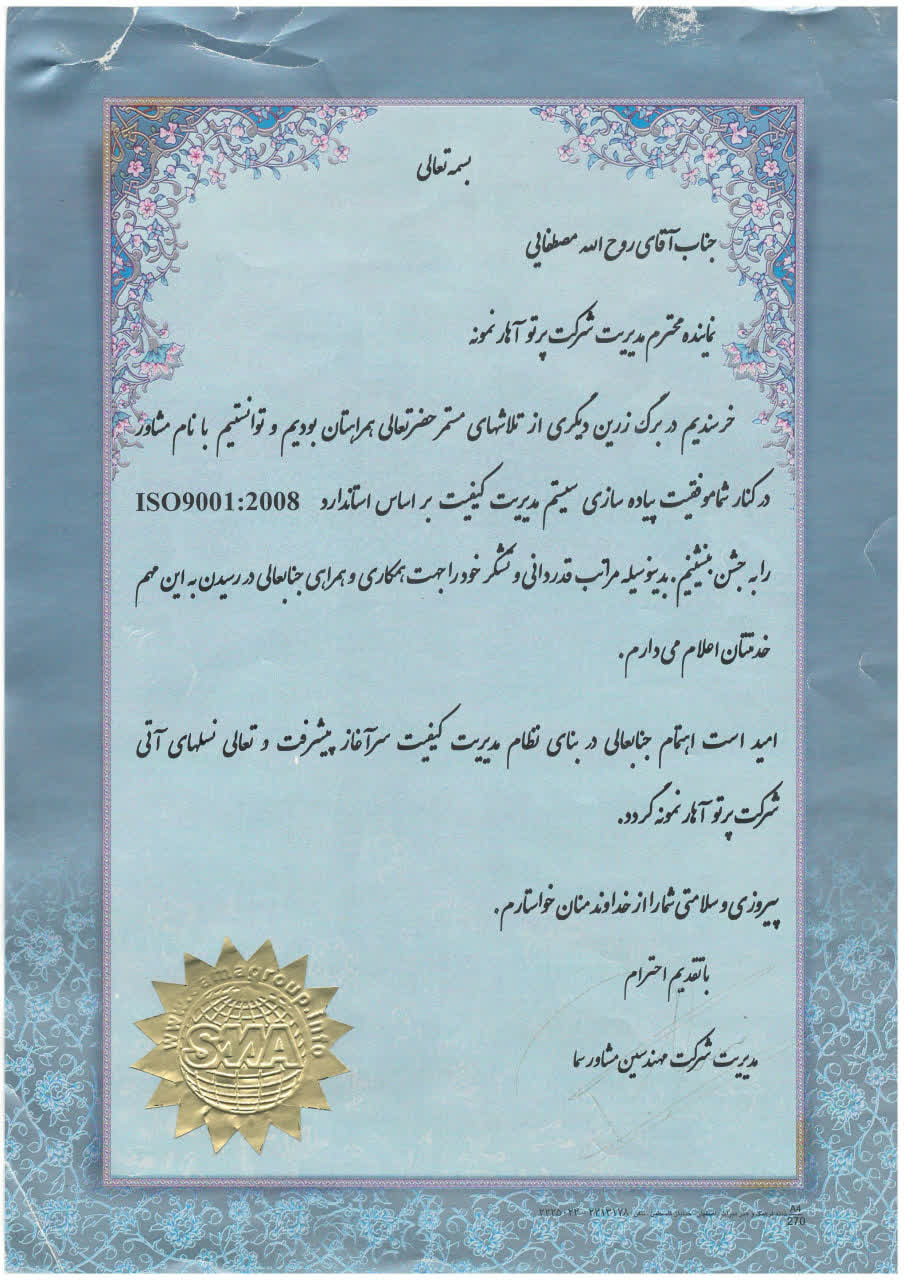 بسمه تعالی
جناب آقای روح الله مصطفایی
نماینده محترم مدیریت شرکت پرتو آهار نمونه
خرسندیم در برگ زرین دیگری از تلاشهای مستمر حضرتعالی همراهتان بودیم و توانستیم با نام مشاور
در کنار شما موفقیت پیاده سازی سیستم مدیریت کیفیت بر اساس استاندارد ISO9001:2008
را به جشن بنشینیم. بدینوسیله مراتب قدردانی و تشکر خود را جهت همکاری و همراهی جنابعالی در رسیدن به این مهم
خدمتتان اعلام می دارم.
امید است اهتمام جنابعالی در بنای نظام مدیریت کیفیت سرآغاز پیشرفت و تعالی نسلهای آتی
شرکت پرتو آهار نمونه گردد.
پیروزی و سلامتی شما را از خداوند منان خواستارم.
با تقدیم احترام
مدیریت شرکت مهندسین مشاور سما
www.samagroup.info
SAMA
A4
270
۲۲۱۳۱۷۸ - ۲۲۲۵۰۲۲